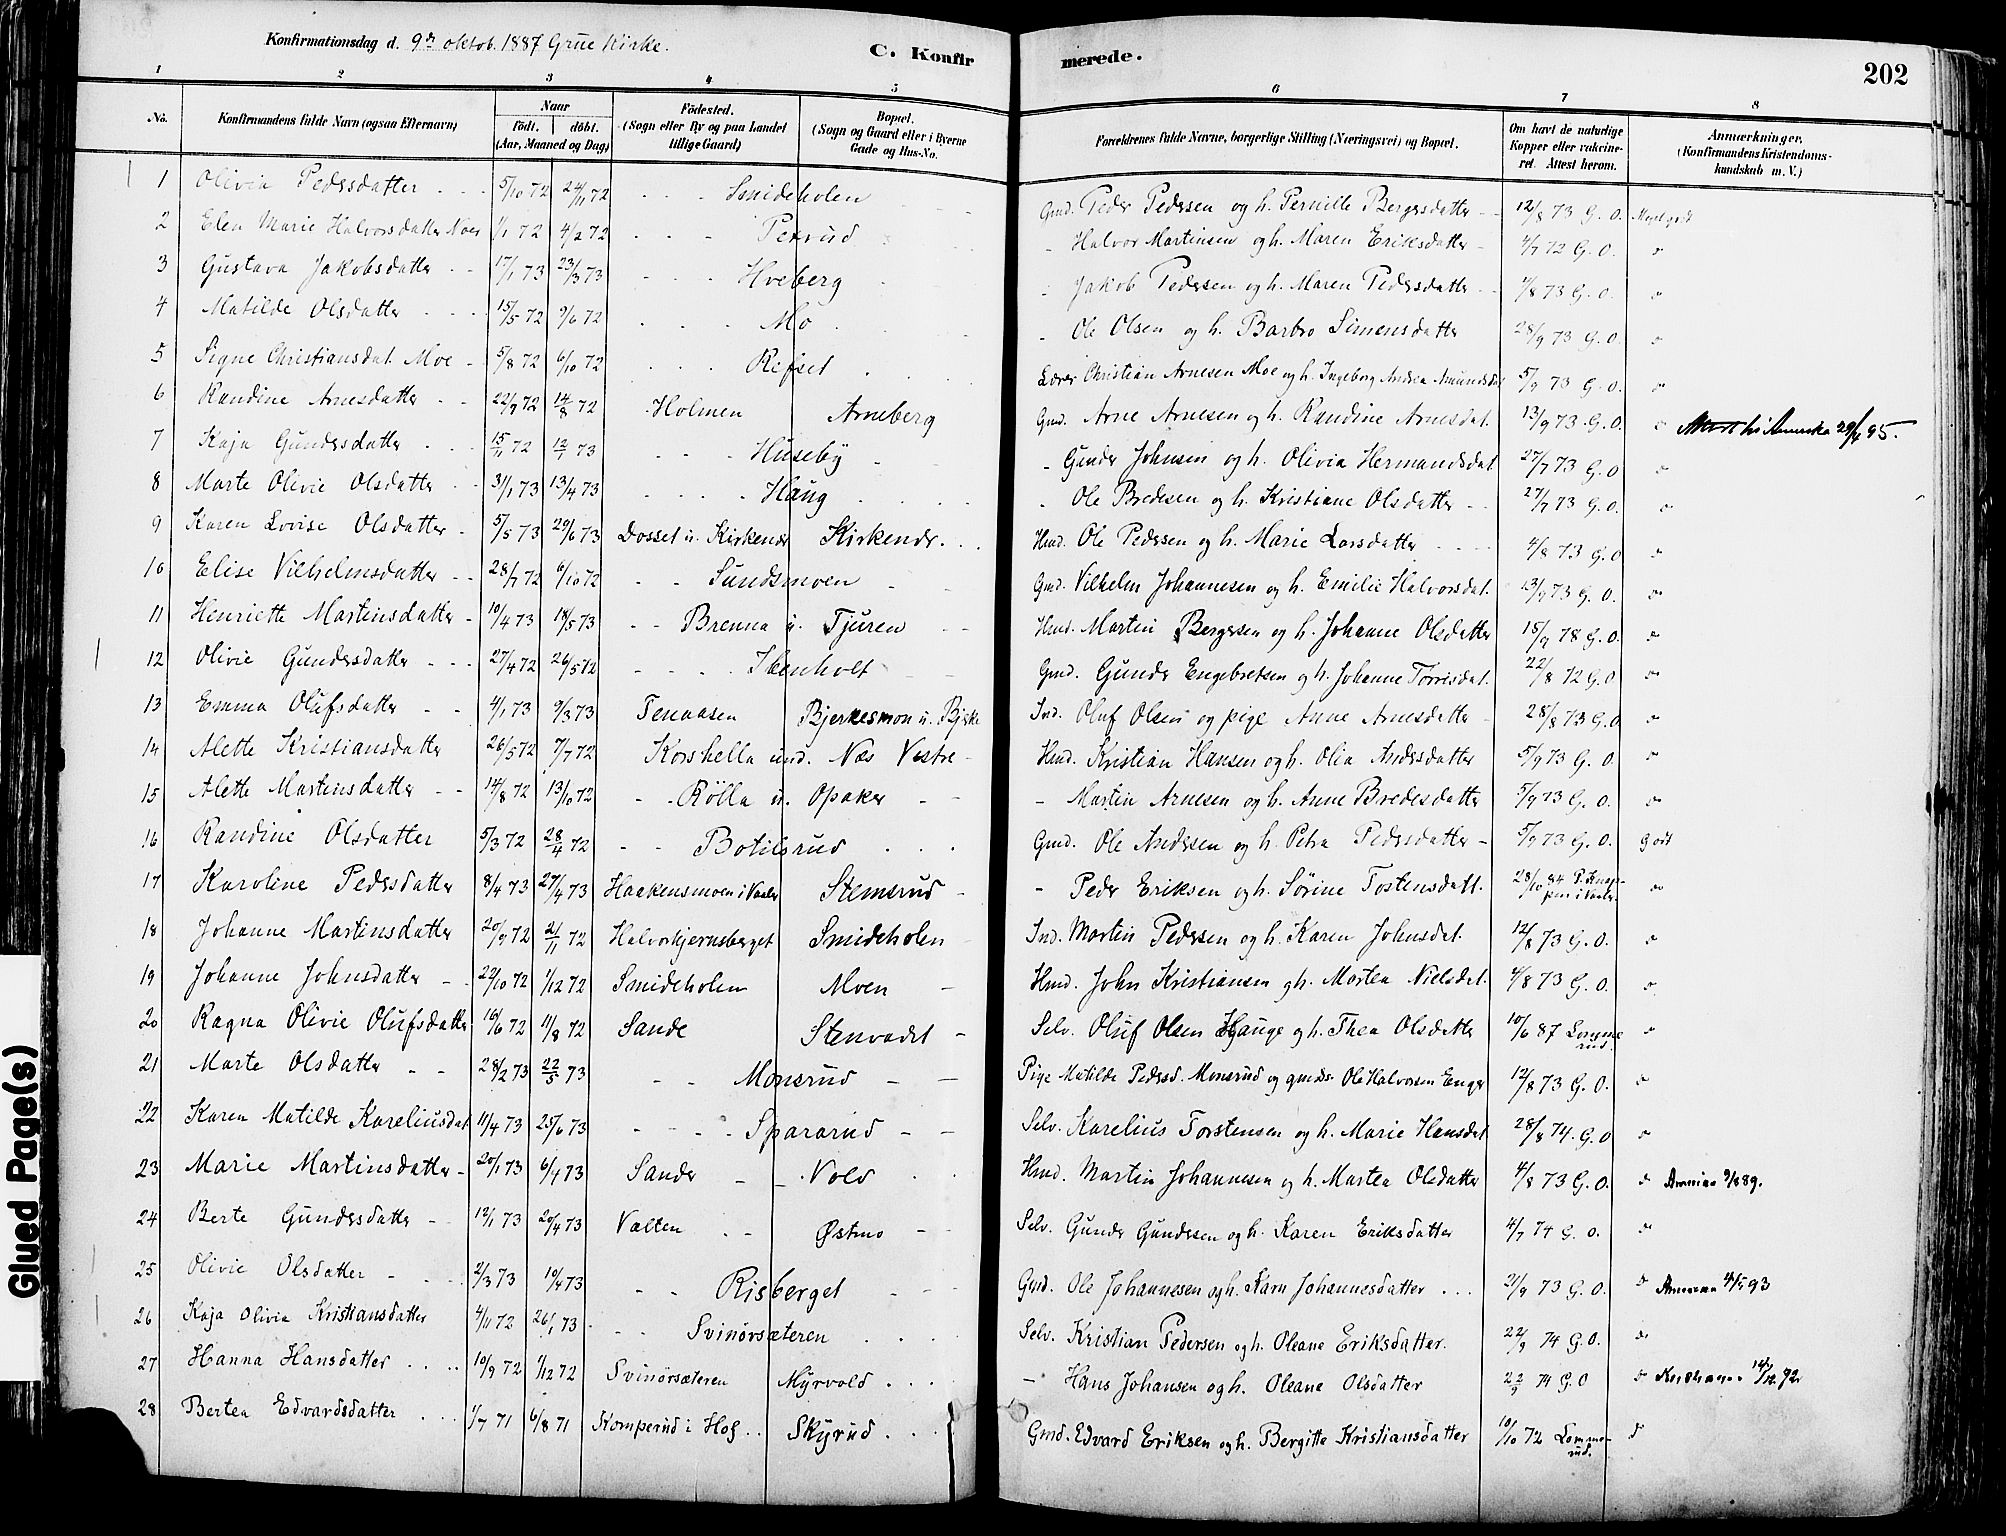 Konfirmationsdag d. 9de oktob. 1887 Grue Kirke.
C. Konfirmerede.
202
1 2 3 4 5 6 7 8
No.
Konfirmandens fulde Navn (ogsaa Efternavn)
Naar
födt. | döbt.
(Aar, Maaned og Dag)
Födested.
(Sogn eller By og paa Landet
tillige Gaard)
Bopæl.
(Sogn og Gaard eller i Byerne
Gade og Hus-No.
Forældrenes fulde Navne, borgerlige Stilling (Næringsvei) og Bopæl.
Om havt de naturlige
Kopper eller vakcine-
ret. Attest herom.
Anmærkninger.
(Konfirmandens Kristendoms-
kundskab m. V.)
1 Olivia Pedersdatter 5/10 72 24/11 72 Smideholen Gmd. Peder Pedersen og h. Pernille Bergersdatter 12/8 73 G. O. Meget godt
2 Elen Marie Halvorsdatter Noer 1/1 72 4/2 72 Pervud - Halvor Martinsen og h. Maren Eriksdatter 4/7 72 G. O. "
3 Gustava Jakobsdatter 17/1 73 23/3 73 Hveberg - Jakob Pedersen og h. Maren Pedersdatter 4/8 73 G. O. "
4 Matilde Olsdatter 15/5 72 9/6 72 Mo - Ole Olsen og h. Barbro Simensdatter 28/9 73 G. O. "
5 Signe Christiansdat. Moe 5/8 72 6/10 72 Refset Lærer Christian Arnesen Moe og h. Ingeborg Andrea Amundsdat 5/9 73 G. O. "
6 Randine Arnesdatter 22/7 72 14/8 72 Holmen Arneberg Gmd. Arne Arnesen og h. Randine Arnesdat. 13/9 73 G. O. " Attest til Amerika 29/4 95.
7 Kaja Gundersdatter 15/11 72 12/1 73 Huseby - Gunder Johnsen og h. Olivia Hermandsdat 27/7 73 G. O "
8 Marte Olivie Olsdatter 31/1 73 13/4 73 Haug - Ole Bredesen og h. Kristiane Olsdatter 27/7 73 G. O. "
9 Karen Lovise Olsdatter 5/5 73 29/6 73 Dosset u. Kirkender Kirkendr. Hmd. Ole Pedersen og h. Marie Larsdatter 4/8 73 G. O "
10 Elise Vilhelmsdatter 28/7 72 6/10 72 Sundsmoen Gmd. Vilhelm Johannesen og h. Emilie Halvorsdat. 13/9 73 G. O. "
11 Henriette Martinsdatter 10/4 73 18/5 73 Brenna u. Tjuren Hmd. Martin Bergersen og h. Johanne Olsdatter 15/9 78 G. O. "
12 Olivie Gundersdatter 27/4 72 26/5 72 Ibenholt Gmd. Gunder Engebretsen og h. Johanne Torrisdat. 22/8 72 G. O "
13 Emma Olufsdatter 4/1 73 9/3 73 Tenaasen Bjerkesmon u. Bjerke Ind. Oluf Olsen og pige Anne Arnesdatter 28/8 73 G. O "
14 Alette Kristiansdatter 26/5 72 7/7 72 Korshella und. Næs Vestre Hmd. Kristian Hansen og h. Olia Andersdatter 5/9 73 G. O. "
15 Alette Martinsdatter 14/8 72 13/10 72 Rølla u. Opaker - Martin Arnesen og h. Anne Bredesdatter 5/9 73 G. O. "
16 Randine Olsdatter 5/3 72 28/4 72 Botilsrud Gmd. Ole Andersen og h. Petra Pedersdatter 5/9 73 G. O. Godt
17 Karoline Pedersdatter 8/4 73 27/4 73 Haakensmoen i Vaaler Stemsrud - Peder Eriksen og h. Sörine Tostensdatt. 28/10 84 i Vaaler. "
18 Johanne Martinsdatter 20/9 72 2/11 72 Halvorkjernsberget Smideholen Ind. Martin Pedersen og h. Karen Johnsdat. 12/8 73 G. O. "
19 Johanne Johnsdatter 22/10 72 1/12 72 Smideholen Moen Hmd. John Kristiansen og h. Martea Nielsdat. 4/8 73 G. O. "
20 Ragna Olivie Olufsdatter 16/6 72 11/8 72 Sande Stenvadet Selv. Oluf Olsen Hauge og h. Thea Olsdatter 10/6 87 Lomme rud. "
21 Marte Olsdatter 28/2 73 22/5 73 Monsrud Pige Matilde Pedersd. Monsrud og gmds. Ole Halvorsen Enger 12/8 73 G. O. "
22 Karen Matilde Kareliusdat 11/4 73 25/6 73 Spararud Selv. Karelius Torstensen og h. Marie Hansdat 28/8 74. G. O "
23 Marie Martinsdatter 20/1 73 6/4 73 Sander Vold Hmd. Martin Johannesen og h. Martea Olsdatter 4/8 73 G. O. " 9/8 89.
24 Berte Gundersdatter 12/1 73 20/4 73 Valten Østmo Selv. Gunder Gundersen og h. Karen Eriksdatter 4/7 74 G. O. "
25 Olivie Olsdatter 2/3 73 10/4 73 Risberget Gmd. Ole Johannesen og h. Karn Johannesdatter 21/9 73 G. O. " 4/5 93
26 Kaja Olivia Kristiansdatter 4/11 72 26/1 73 Svinørsæteren Selv. Kristian Pedersen og h. Oleane Eriksdatter. 22/9 74 G. O. "
27 Hanna Hansdatter 10/9 72 1/12 72 Svinørsæteren Myrvold - Hans Johansen og h. Oleane Olsdatter 22/9 74 G. O " 14/12 92
28 Bertea Edvardsdatter 1/7 71 6/8 71 Komperud i Hof Skyrud Gmd. Edvard Eriksen og h. Bergitte Kristiansdatter 10/10 72 Lomme- rud. "
Glued Page(s)